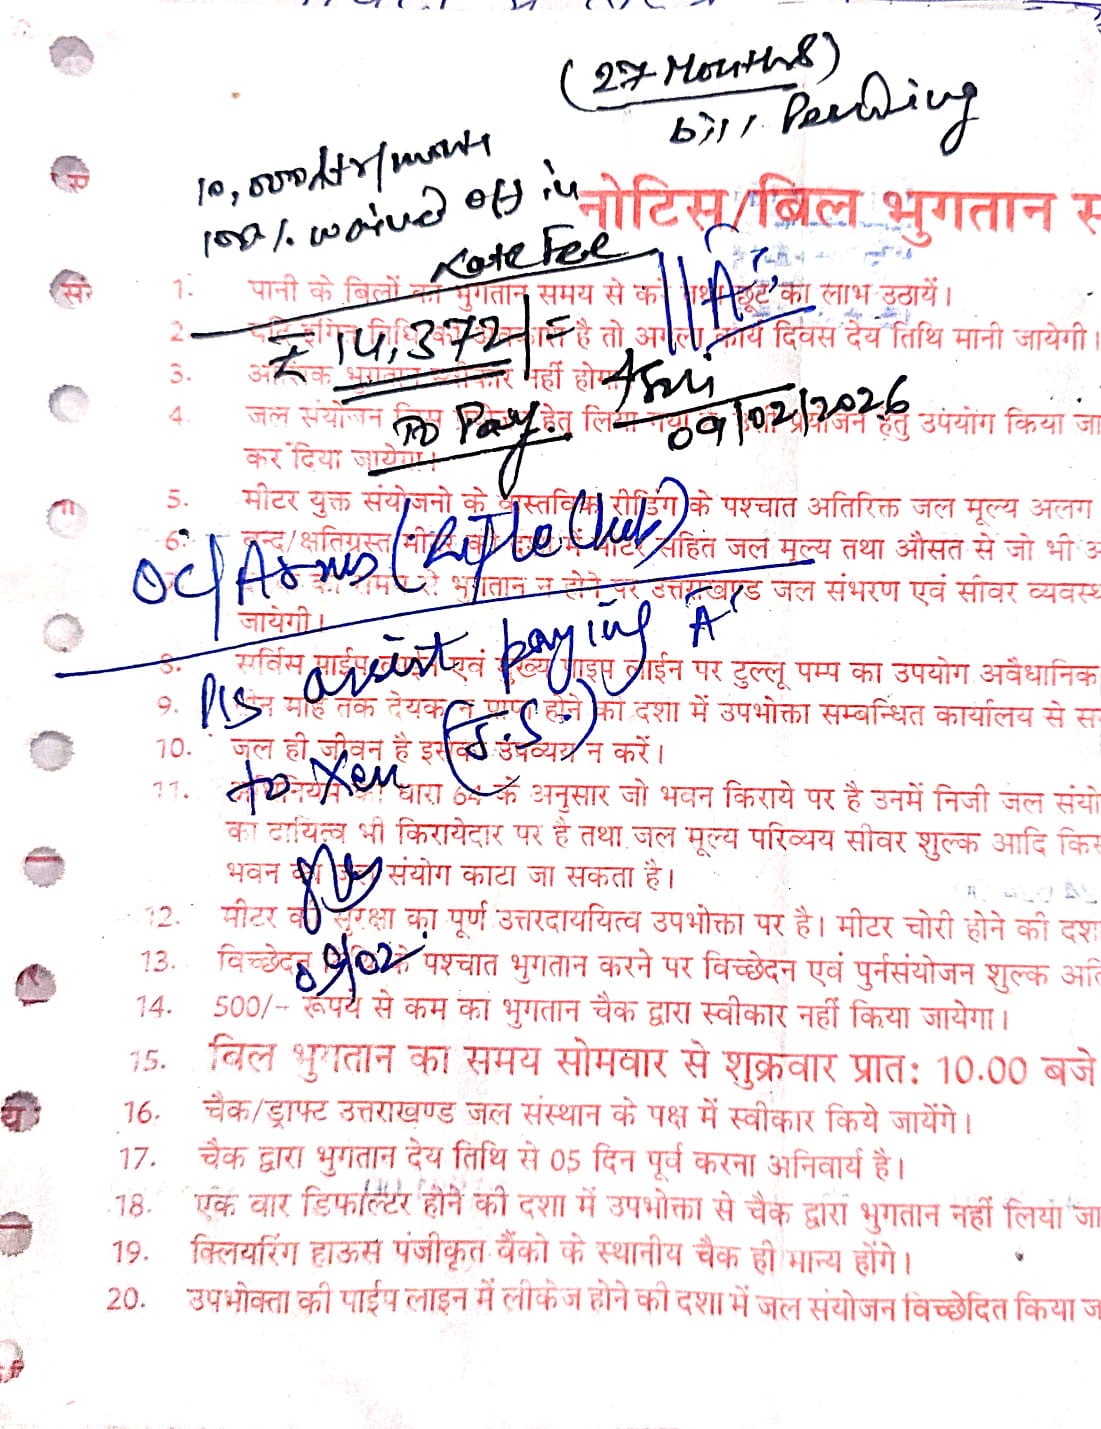 (27 Months)
bill Pending
10,000 ltr/month
100% waived off in
Late Fee
नोटिस/बिल भुगतान स
"A"
1. पानी के बिलों का भुगतान समय से करें तथा छूट का लाभ उठायें।
2. यदि इंगित तिथि को अवकाश है तो अगला कार्य दिवस देय तिथि मानी जायेगी।
₹ 14,372/=
3. आंशिक भुगतान स्वीकार नहीं होगा
To Pay.
09/02/2026
4. जल संयोजन जिस प्रयोजन हेतु लिया गया है उसी प्रयोजन हेतु उपयोग किया जा
कर दिया जायेगा।
5. मीटर युक्त संयोजनो के वास्तविक रीडिंग के पश्चात अतिरिक्त जल मूल्य अलग
OC/Arms (Rifle Club)
6. बन्द/क्षतिग्रस्त मीटर की दशा में मीटर सहित जल मूल्य तथा औसत से जो भी अ
भुगतान न होने पर उत्तराखण्ड जल संभरण एवं सीवर व्यवस्थ
जायेगी।
Pls assist paying "A"
8. सर्विस पाईप लाईन एवं मुख्य पाइप लाईन पर टुल्लू पम्प का उपयोग अवैधानिक
9. तीन माह तक देयक न प्राप्त होने की दशा में उपभोक्ता सम्बन्धित कार्यालय से स
(J.S.)
10. जल ही जीवन है इसका उपव्यय न करें।
to Xen
11. अधिनियम की धारा 64 के अनुसार जो भवन किराये पर है उनमें निजी जल संयो
का दायित्व भी किरायेदार पर है तथा जल मूल्य परिव्यय सीवर शुल्क आदि किस
भवन का जल संयोग काटा जा सकता है।
12. मीटर की सुरक्षा का पूर्ण उत्तरदाययित्व उपभोक्ता पर है। मीटर चोरी होने की दशा
09/02
13. विच्छेदन के पश्चात भुगतान करने पर विच्छेदन एवं पुर्नसंयोजन शुल्क अति
14. 500/- रूपये से कम का भुगतान चैक द्वारा स्वीकार नहीं किया जायेगा।
15. बिल भुगतान का समय सोमवार से शुक्रवार प्रात: 10.00 बजे
16. चैक/ड्राफ्ट उत्तराखण्ड जल संस्थान के पक्ष में स्वीकार किये जायेंगे।
17. चैक द्वारा भुगतान देय तिथि से 05 दिन पूर्व करना अनिवार्य है।
18. एक वार डिफाल्टर होने की दशा में उपभोक्ता से चैक द्वारा भुगतान नहीं लिया जा
19. क्लियरिंग हाऊस पंजीकृत बैंको के स्थानीय चैक ही मान्य होंगे।
20. उपभोक्ता की पाईप लाइन में लीकेज होने की दशा में जल संयोजन विच्छेदित किया ज